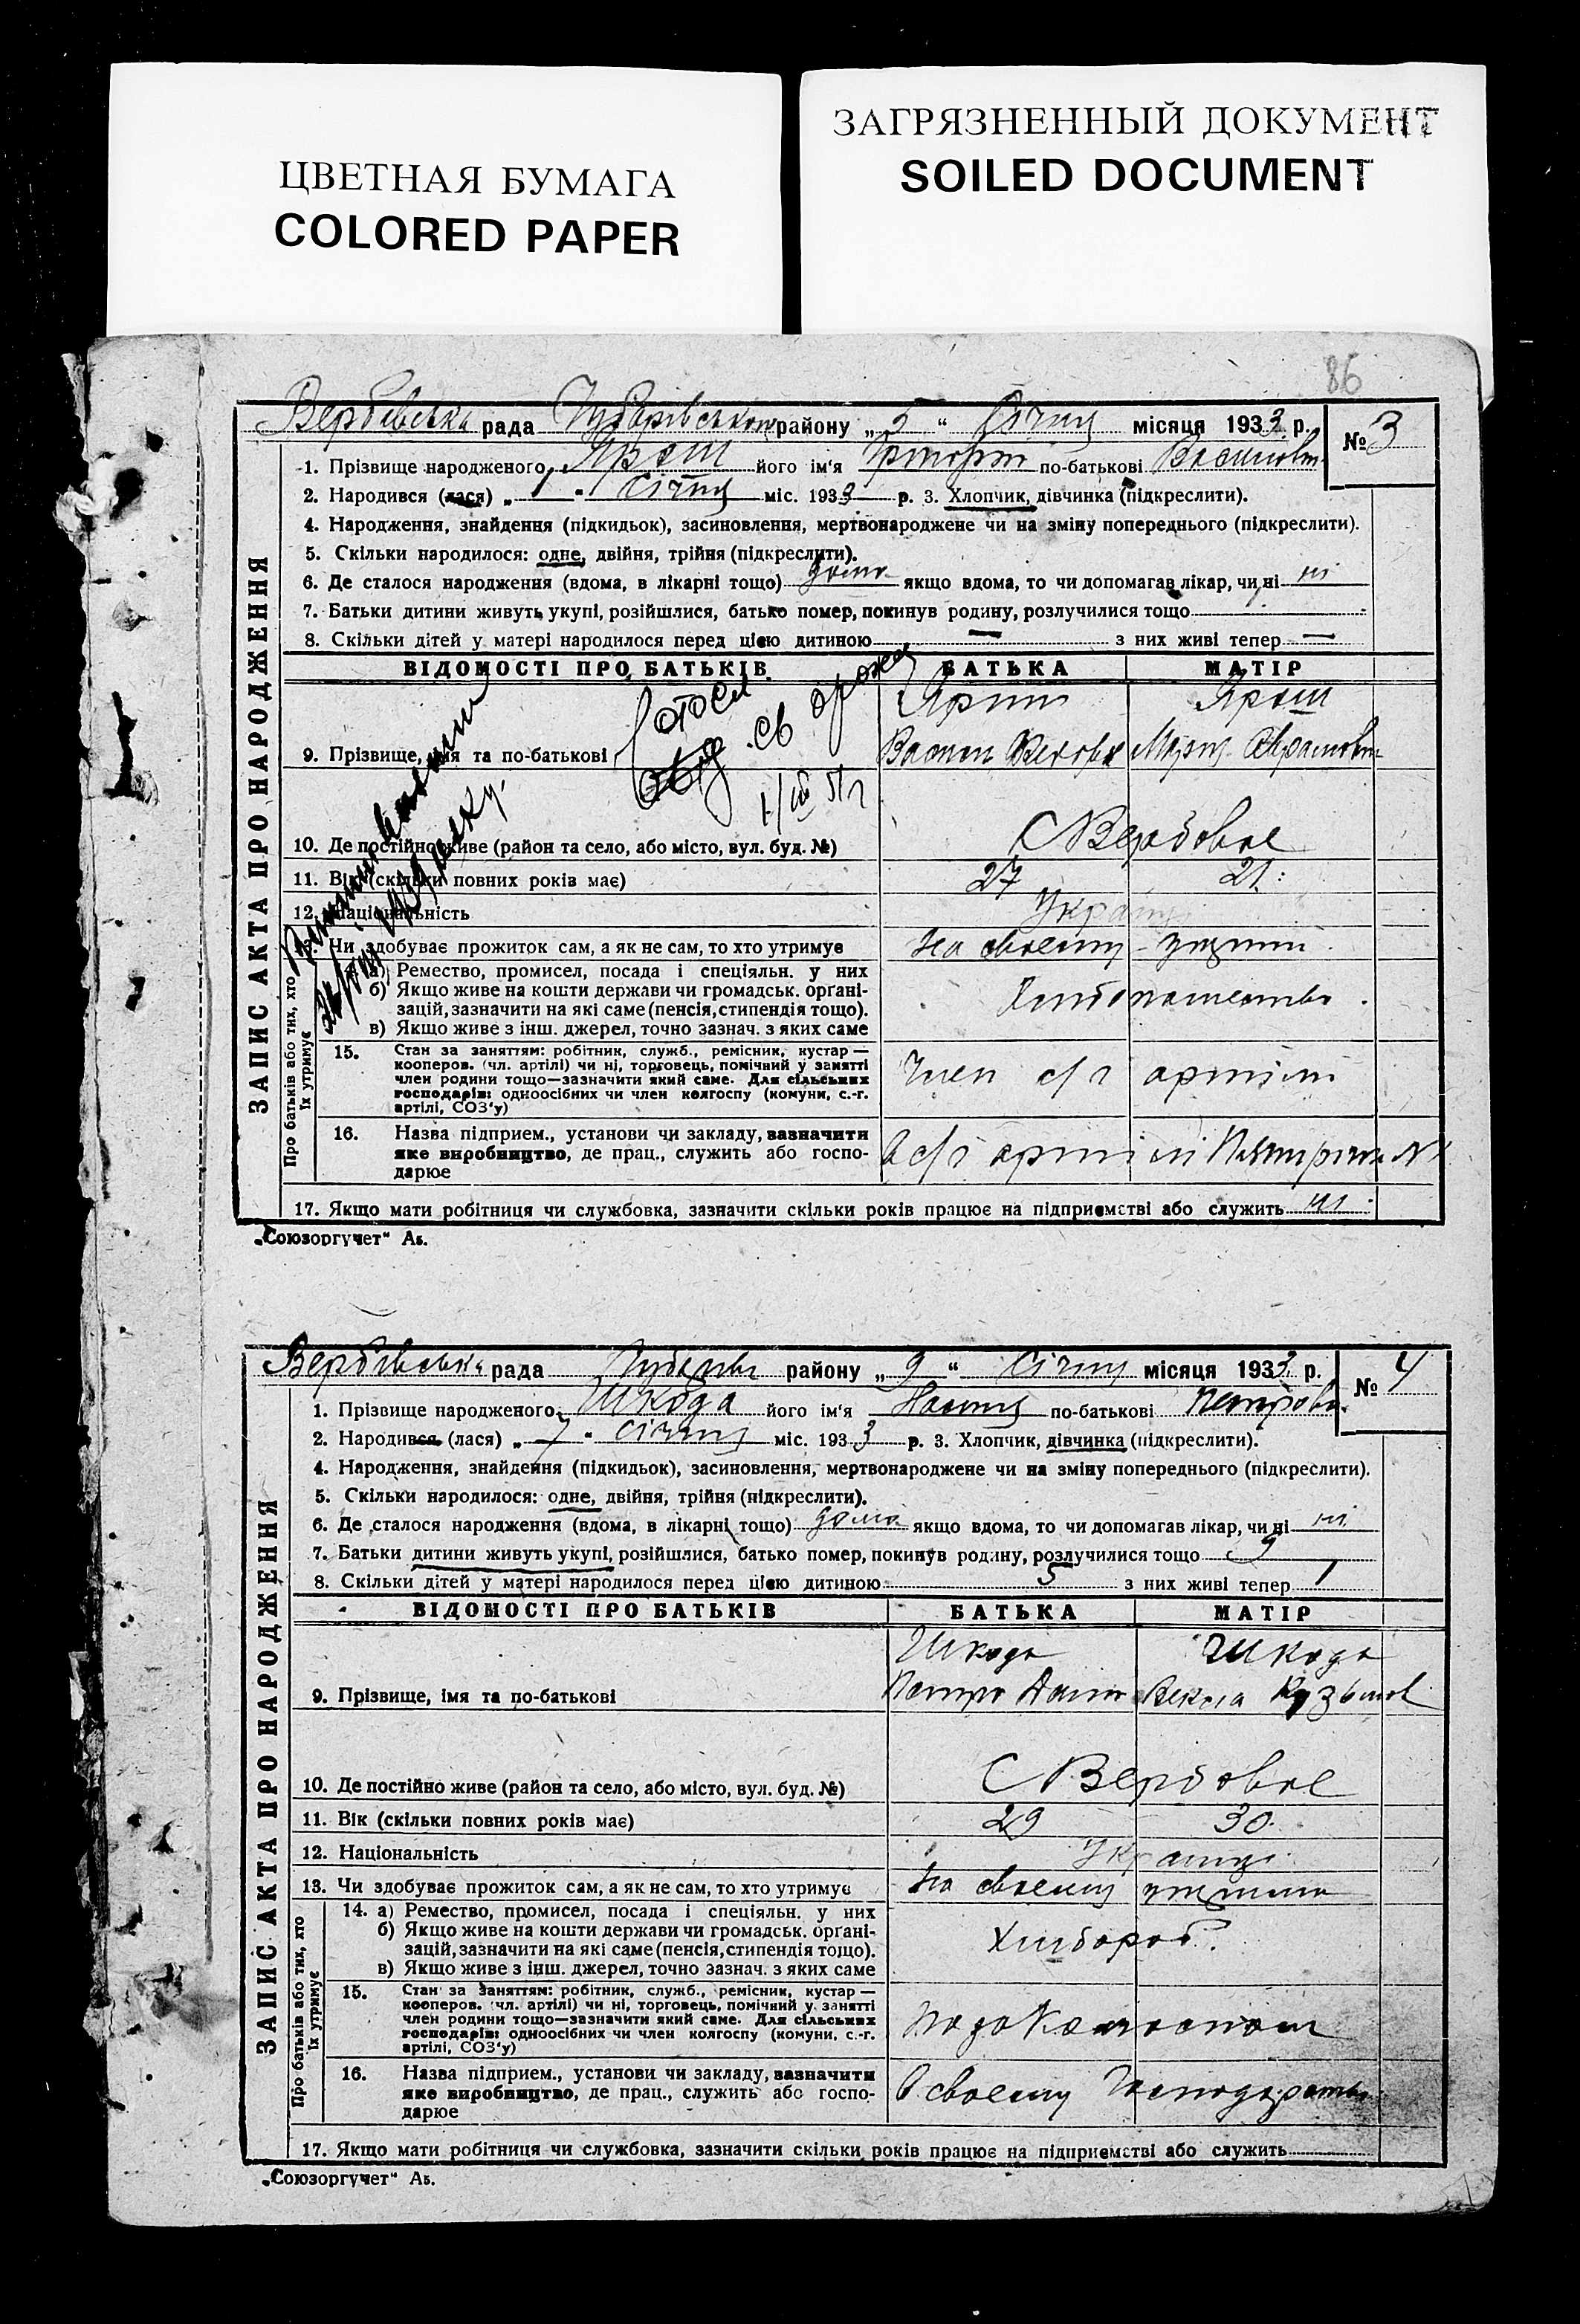 ЦВЕТНАЯ БУМАГА
COLORED PAPER
ЗАГРЯЗНЕННЫЙ ДОКУМЕНТ
SOILED DOCUMENT
86
Вербівська рада району „5“ Січня місяця 1933 р. № 3
ЗАПИС АКТА ПРО НАРОДЖЕННЯ
1. Прізвище народженого Ярош його ім'я по-батькові
2. Народився (лася) „1" Січня міс. 1933 р. 3. Хлопчик, дівчинка (підкреслити).
4. Народження, знайдення (підкидьок), засиновлення, мертвонароджене чи на зміну попереднього (підкреслити).
5. Скільки народилося: одне, двійня, трійня (підкреслити).
6. Де сталося народження (вдома, в лікарні тощо) дома якщо вдома, то чи допомагав лікар, чи ні ні
7. Батьки дитини живуть укупі, розійшлися, батько помер, покинув родину, розлучилися тощо
8. Скільки дітей у матері народилося перед цією дитиною — з них живі тепер —
ВІДОМОСТІ ПРО БАТЬКІВ БАТЬКА МАТІР
Ярош
9. Прізвище, імя та по-батькові
10. Де постійно живе (район та село, або місто, вул. буд. №) С Вербовое
11. Вік (скільки повних років має) 27 21
12. Національність
13. Чи здобуває прожиток сам, а як не сам, то хто утримує на своему
Про батьків або тих, хто їх утримує
14. а) Ремество, промисел, посада і спеціяльн. у них
б) Якщо живе на кошти держави чи громадськ. орґані-
зацій, зазначити на які саме (пенсія, стипендія тощо).
в) Якщо живе з інш. джерел, точно зазнач. з яких саме
15. Стан за заняттям: робітник, служб., ремісник, кустар —
кооперов. (чл. артілі) чи ні, торговець, помічний у занятті
член родини тощо—зазначити який саме. Для сільських
господарів: одноосібних чи член колгоспу (комуни, с.-г.
артілі, СОЗ'у)
Член с/г артілі
16. Назва підприєм., установи чи закладу, зазначити
яке виробництво, де прац., служить або госпо-
дарює
В с/г артілі
17. Якщо мати робітниця чи службовка, зазначити скільки років працює на підприємстві або служить ні
„Союзоргучет“ Аз.
Вербівська рада району „9“ Січня місяця 1933 р. № 4
ЗАПИС АКТА ПРО НАРОДЖЕННЯ
1. Прізвище народженого Шкода його ім'я по-батькові Петрови
2. Народився (лася) „7" Січня міс. 1933 р. 3. Хлопчик, дівчинка (підкреслити).
4. Народження, знайдення (підкидьок), засиновлення, мертвонароджене чи на зміну попереднього (підкреслити).
5. Скільки народилося: одне, двійня, трійня (підкреслити).
6. Де сталося народження (вдома, в лікарні тощо) дома якщо вдома, то чи допомагав лікар, чи ні ні
7. Батьки дитини живуть укупі, розійшлися, батько помер, покинув родину, розлучилися тощо
8. Скільки дітей у матері народилося перед цією дитиною 5 з них живі тепер 1
ВІДОМОСТІ ПРО БАТЬКІВ БАТЬКА МАТІР
Шкода Шкода
9. Прізвище, імя та по-батькові Петро
10. Де постійно живе (район та село, або місто, вул. буд. №) С Вербовое
11. Вік (скільки повних років має) 29 30
12. Національність
13. Чи здобуває прожиток сам, а як не сам, то хто утримує на своему
Про батьків або тих, хто їх утримує
14. а) Ремество, промисел, посада і спеціяльн. у них
б) Якщо живе на кошти держави чи громадськ. орґані-
зацій, зазначити на які саме (пенсія, стипендія тощо).
в) Якщо живе з інш. джерел, точно зазнач. з яких саме
Хлібороб.
15. Стан за заняттям: робітник, служб., ремісник, кустар —
кооперов. (чл. артілі) чи ні, торговець, помічний у занятті
член родини тощо—зазначити який саме. Для сільських
господарів: одноосібних чи член колгоспу (комуни, с.-г.
артілі, СОЗ'у)
16. Назва підприєм., установи чи закладу, зазначити
яке виробництво, де прац., служить або госпо-
дарює
В своему
17. Якщо мати робітниця чи службовка, зазначити скільки років працює на підприємстві або служить
„Союзоргучет“ Аз.